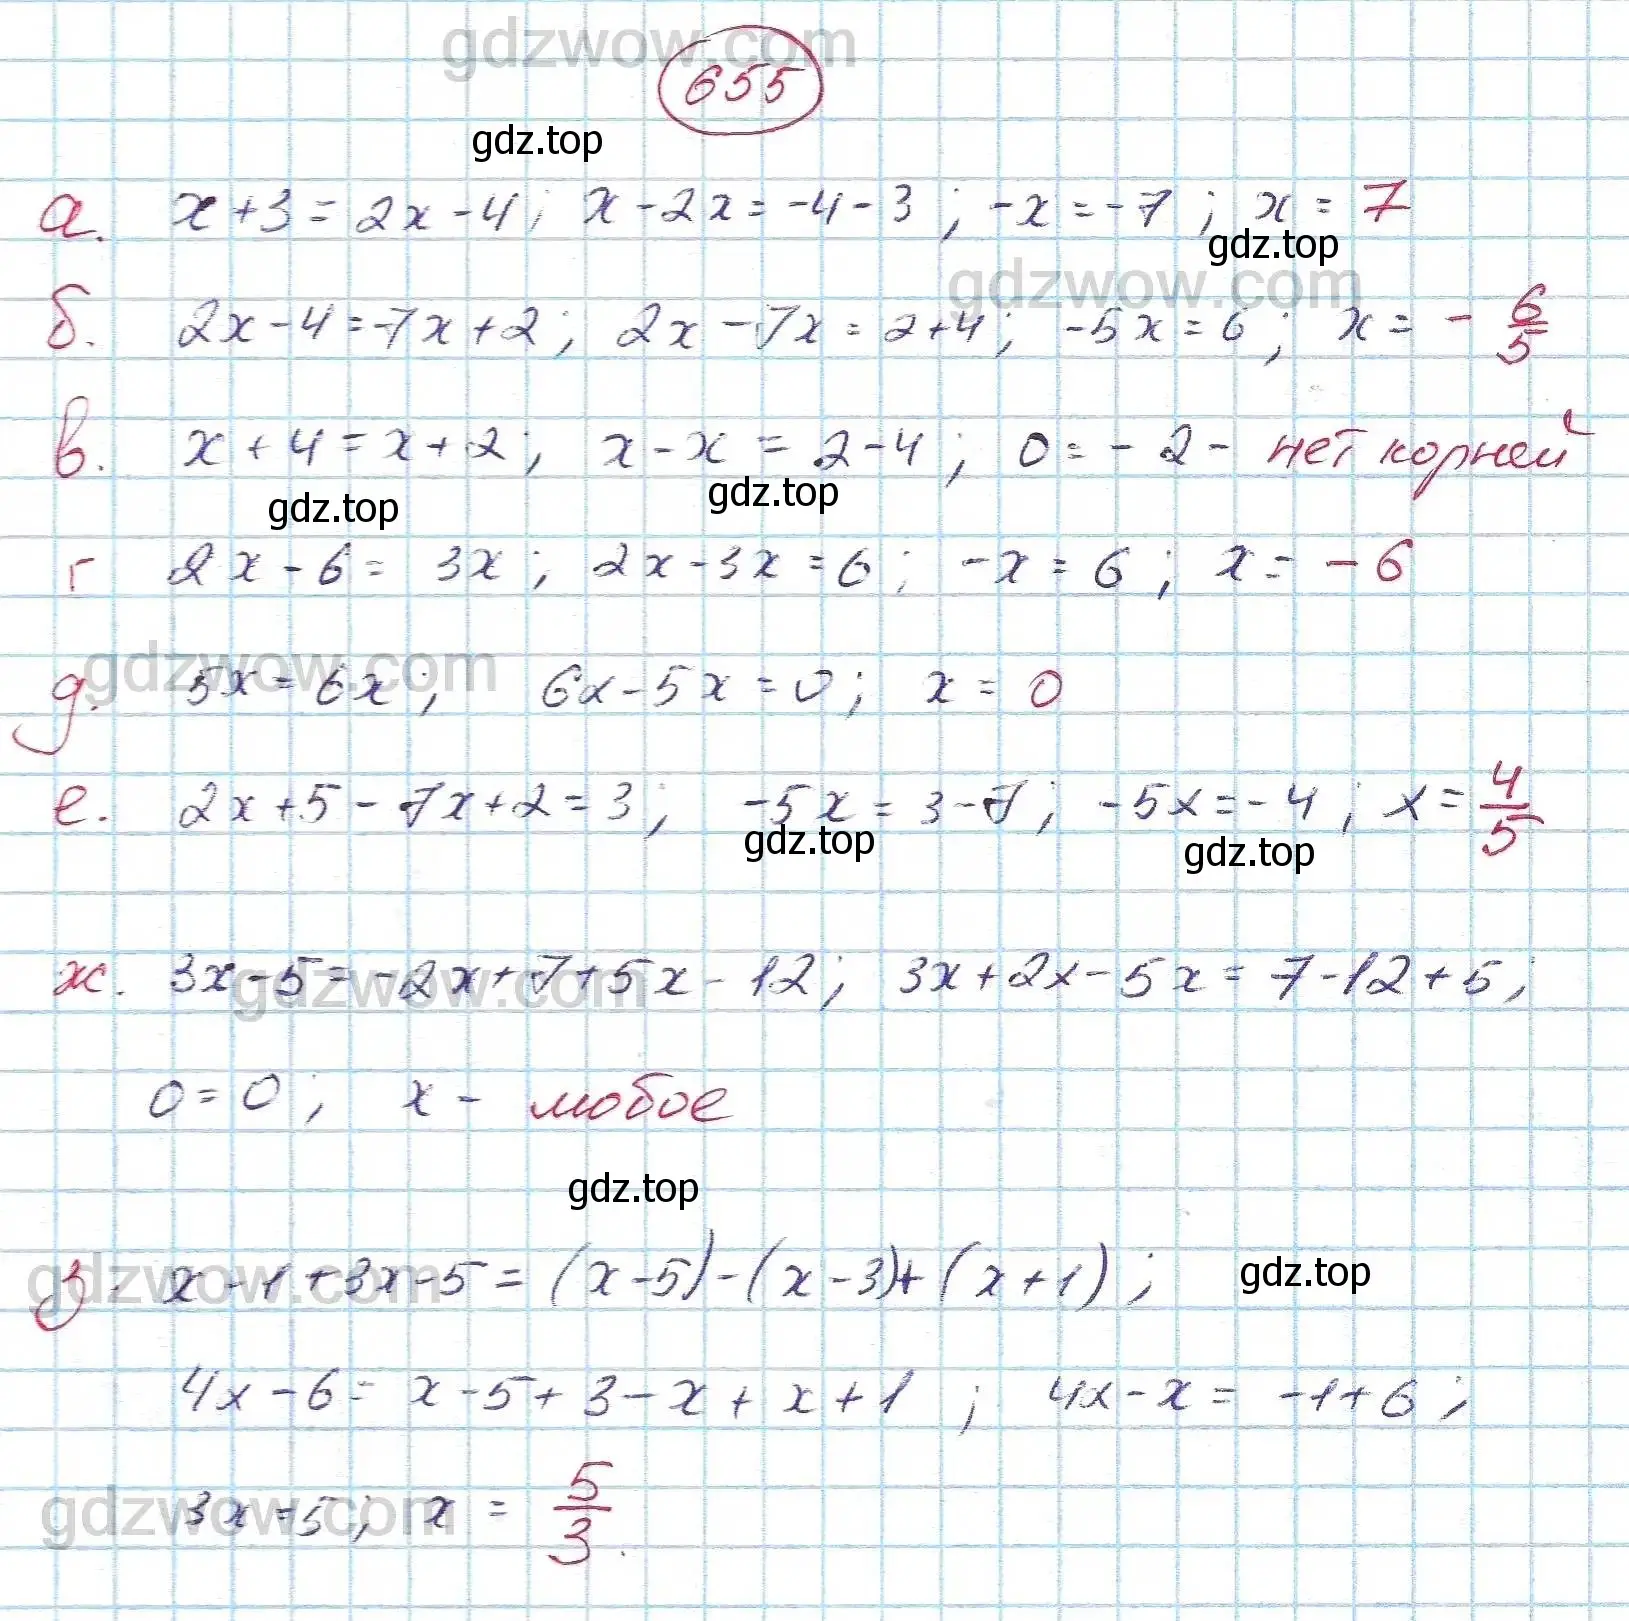 gdzwow.com
655
gdz.top
а. x + 3 = 2x - 4; x - 2x = -4 - 3; -x = -7; x = 7
gdz.top
gdzwow.com
б. 2x - 4 = -7x + 2; 2x - 7x = 2 + 4; -5x = 6; x = - 6/5
в. x + 4 = x + 2; x - x = 2 - 4; 0 = - 2 - нет корней
gdz.top gdz.top
г 2x - 6 = 3x; 2x - 3x = 6; -x = 6; x = - 6
gdzwow.com
д. 5x = 6x; 6x - 5x = 0; x = 0
е. 2x + 5 - 7x + 2 = 3; -5x = 3 - 7; -5x = -4; x = 4/5
gdz.top gdz.top
ж. 3x - 5 = -2x + 7 + 5x - 12; 3x + 2x - 5x = 7 - 12 + 5;
gdzwow.com
0 = 0; x - любое
gdz.top
з. x - 1 + 3x - 5 = (x - 5) - (x - 3) + (x + 1);
gdzwow.com gdz.top
4x - 6 = x - 5 + 3 - x + x + 1; 4x - x = -1 + 6;
3x = 5; x = 5/3.
gdzwow.com